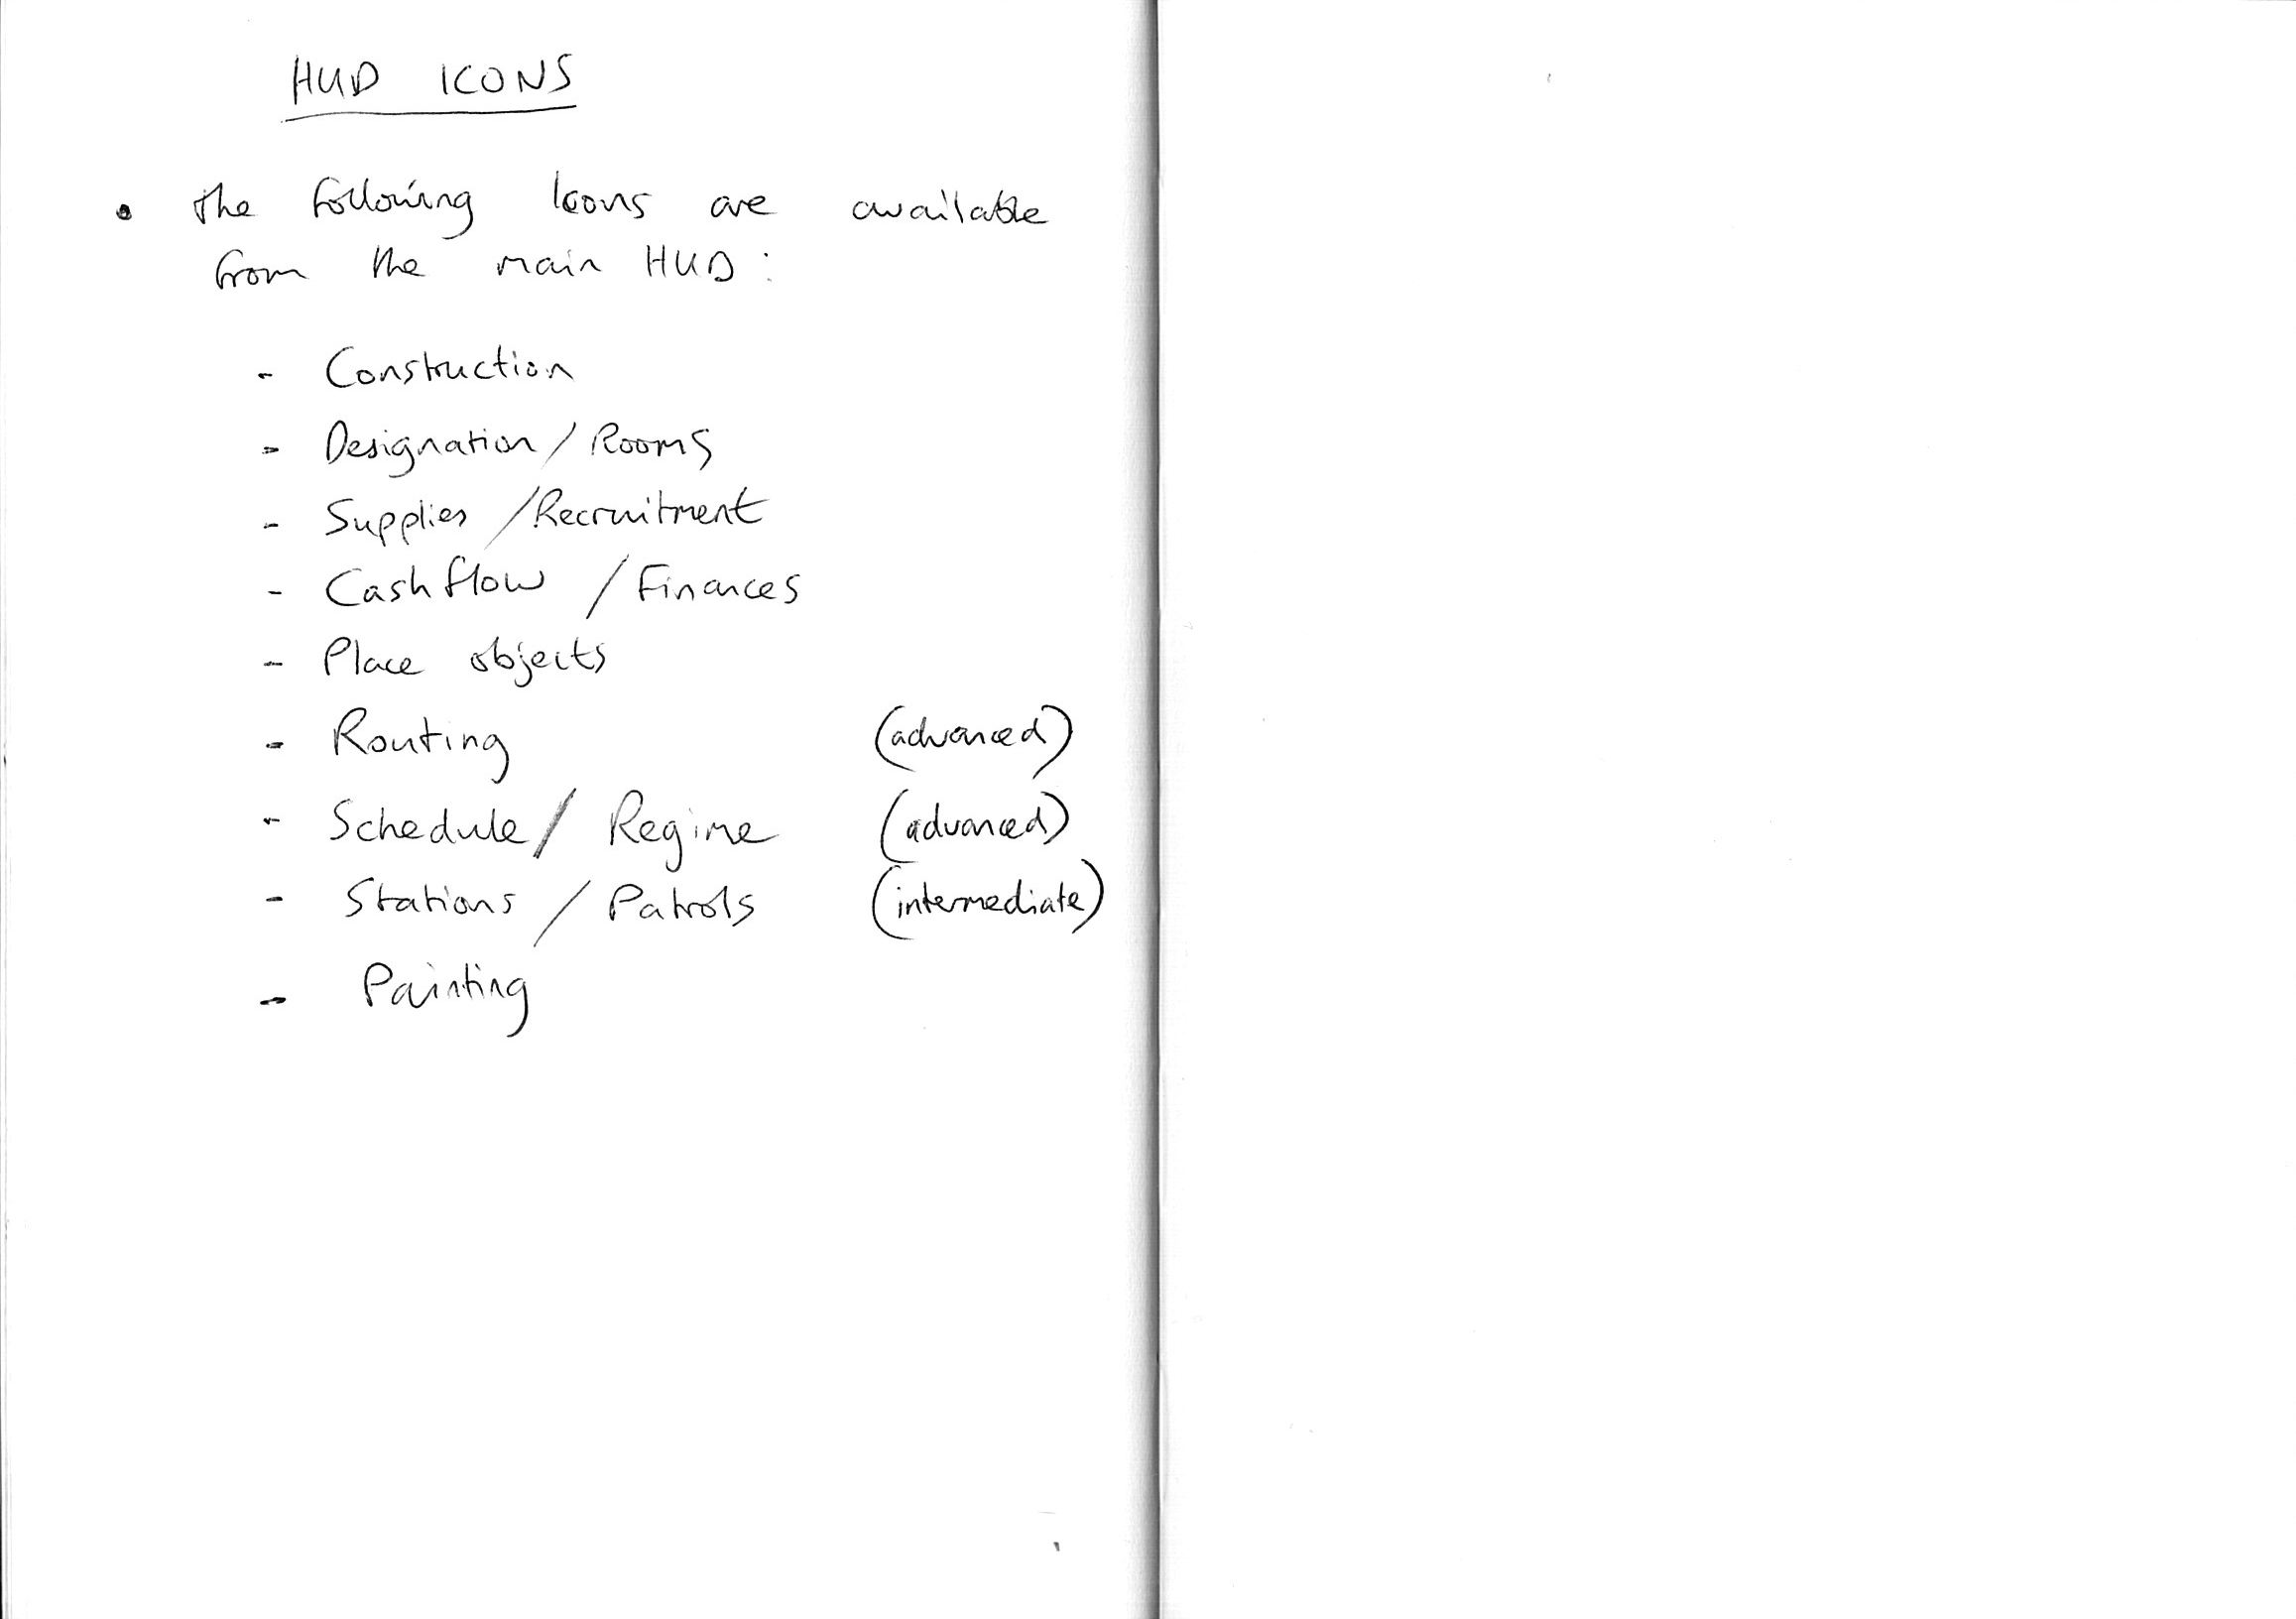 HUD ICONS
• The following Icons are available
from the main HUD:
- Construction
- Designation / Rooms
- Supplies / Recruitment
- Cashflow / Finances
- Place objects
- Routing (advanced)
- Schedule / Regime (advanced)
- Stations / Patrols (intermediate)
- Painting